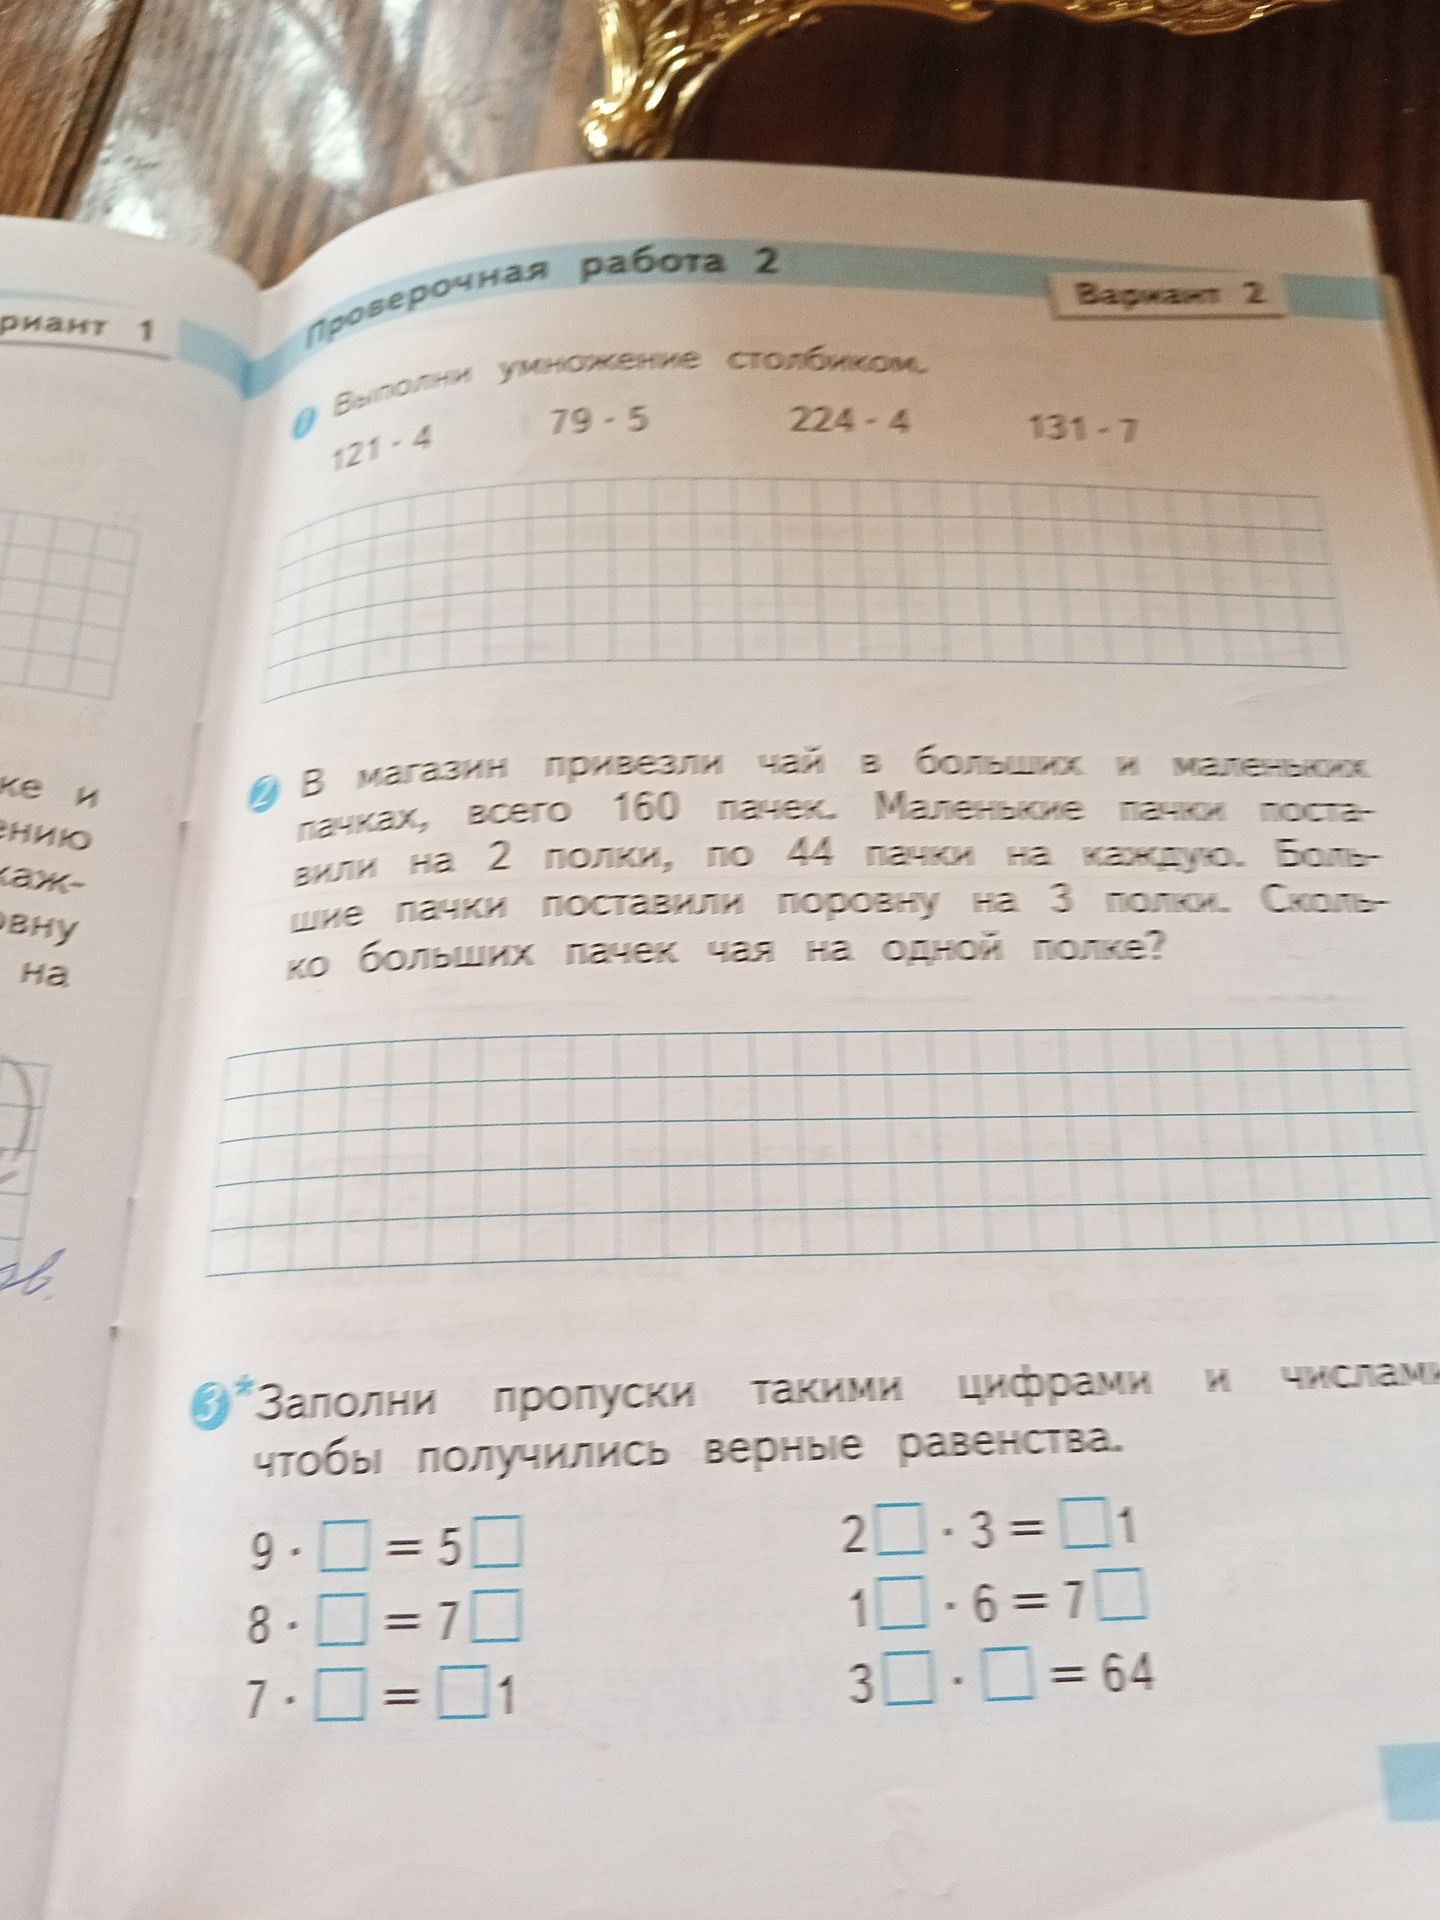 риант 1
ке и
ению
каж-
овну
на
ов.
Проверочная работа 2
Вариант 2
1 Выполни умножение столбиком.
121 · 4 79 · 5 224 · 4 131 · 7
2 В магазин привезли чай в больших и маленьких
пачках, всего 160 пачек. Маленькие пачки поста-
вили на 2 полки, по 44 пачки на каждую. Боль-
шие пачки поставили поровну на 3 полки. Сколь-
ко больших пачек чая на одной полке?
3* Заполни пропуски такими цифрами и числами
чтобы получились верные равенства.
9 · □ = 5□ 2□ · 3 = □1
8 · □ = 7□ 1□ · 6 = 7□
7 · □ = □1 3□ · □ = 64